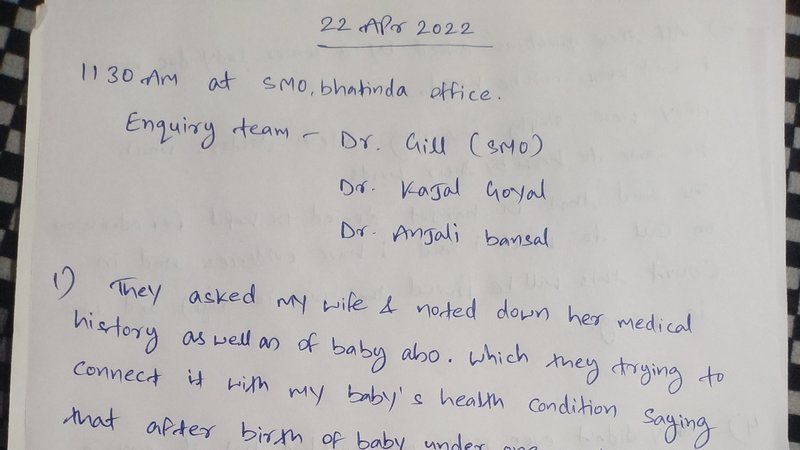 22 Apr 2022
1130 AM at SMO, bhatinda office.
Enquiry team - Dr. Gill (SMO)
Dr. Kajal Goyal
Dr. Anjali bansal
1) They asked my wife & noted down her medical
history as well as of baby also. which they trying to
connect it with my baby's health condition saying
that after birth of baby under